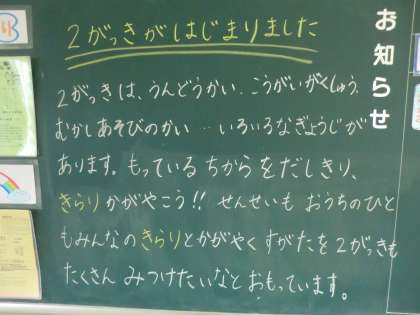 お知らせ
2がっきがはじまりました
2がっきは、うんどうかい、こうがいがくしゅう、
むかしあそびのかい…いろいろなぎょうじが
あります。もっているちからをだしきり、
きらりかがやこう!!せんせいもおうちのひと
もみんなのきらりとかがやくすがたを2がっきも
たくさんみつけたいなとおもっています。